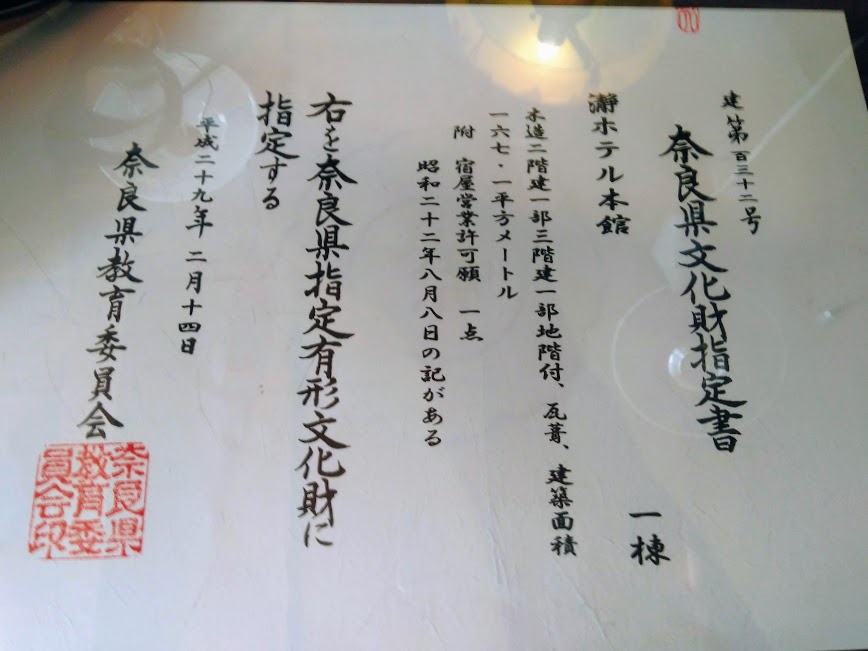 建第百三十二号
奈良県文化財指定書
瀞ホテル本館 一棟
木造二階建一部三階建一部地階付、瓦葺、建築面積
一六七・一平方メートル
附 宿屋営業許可願 一点
昭和二十二年八月八日の記がある
右を奈良県指定有形文化財に
指定する
平成二十九年二月十四日
奈良県教育委員会
奈良県
教育委
員会印